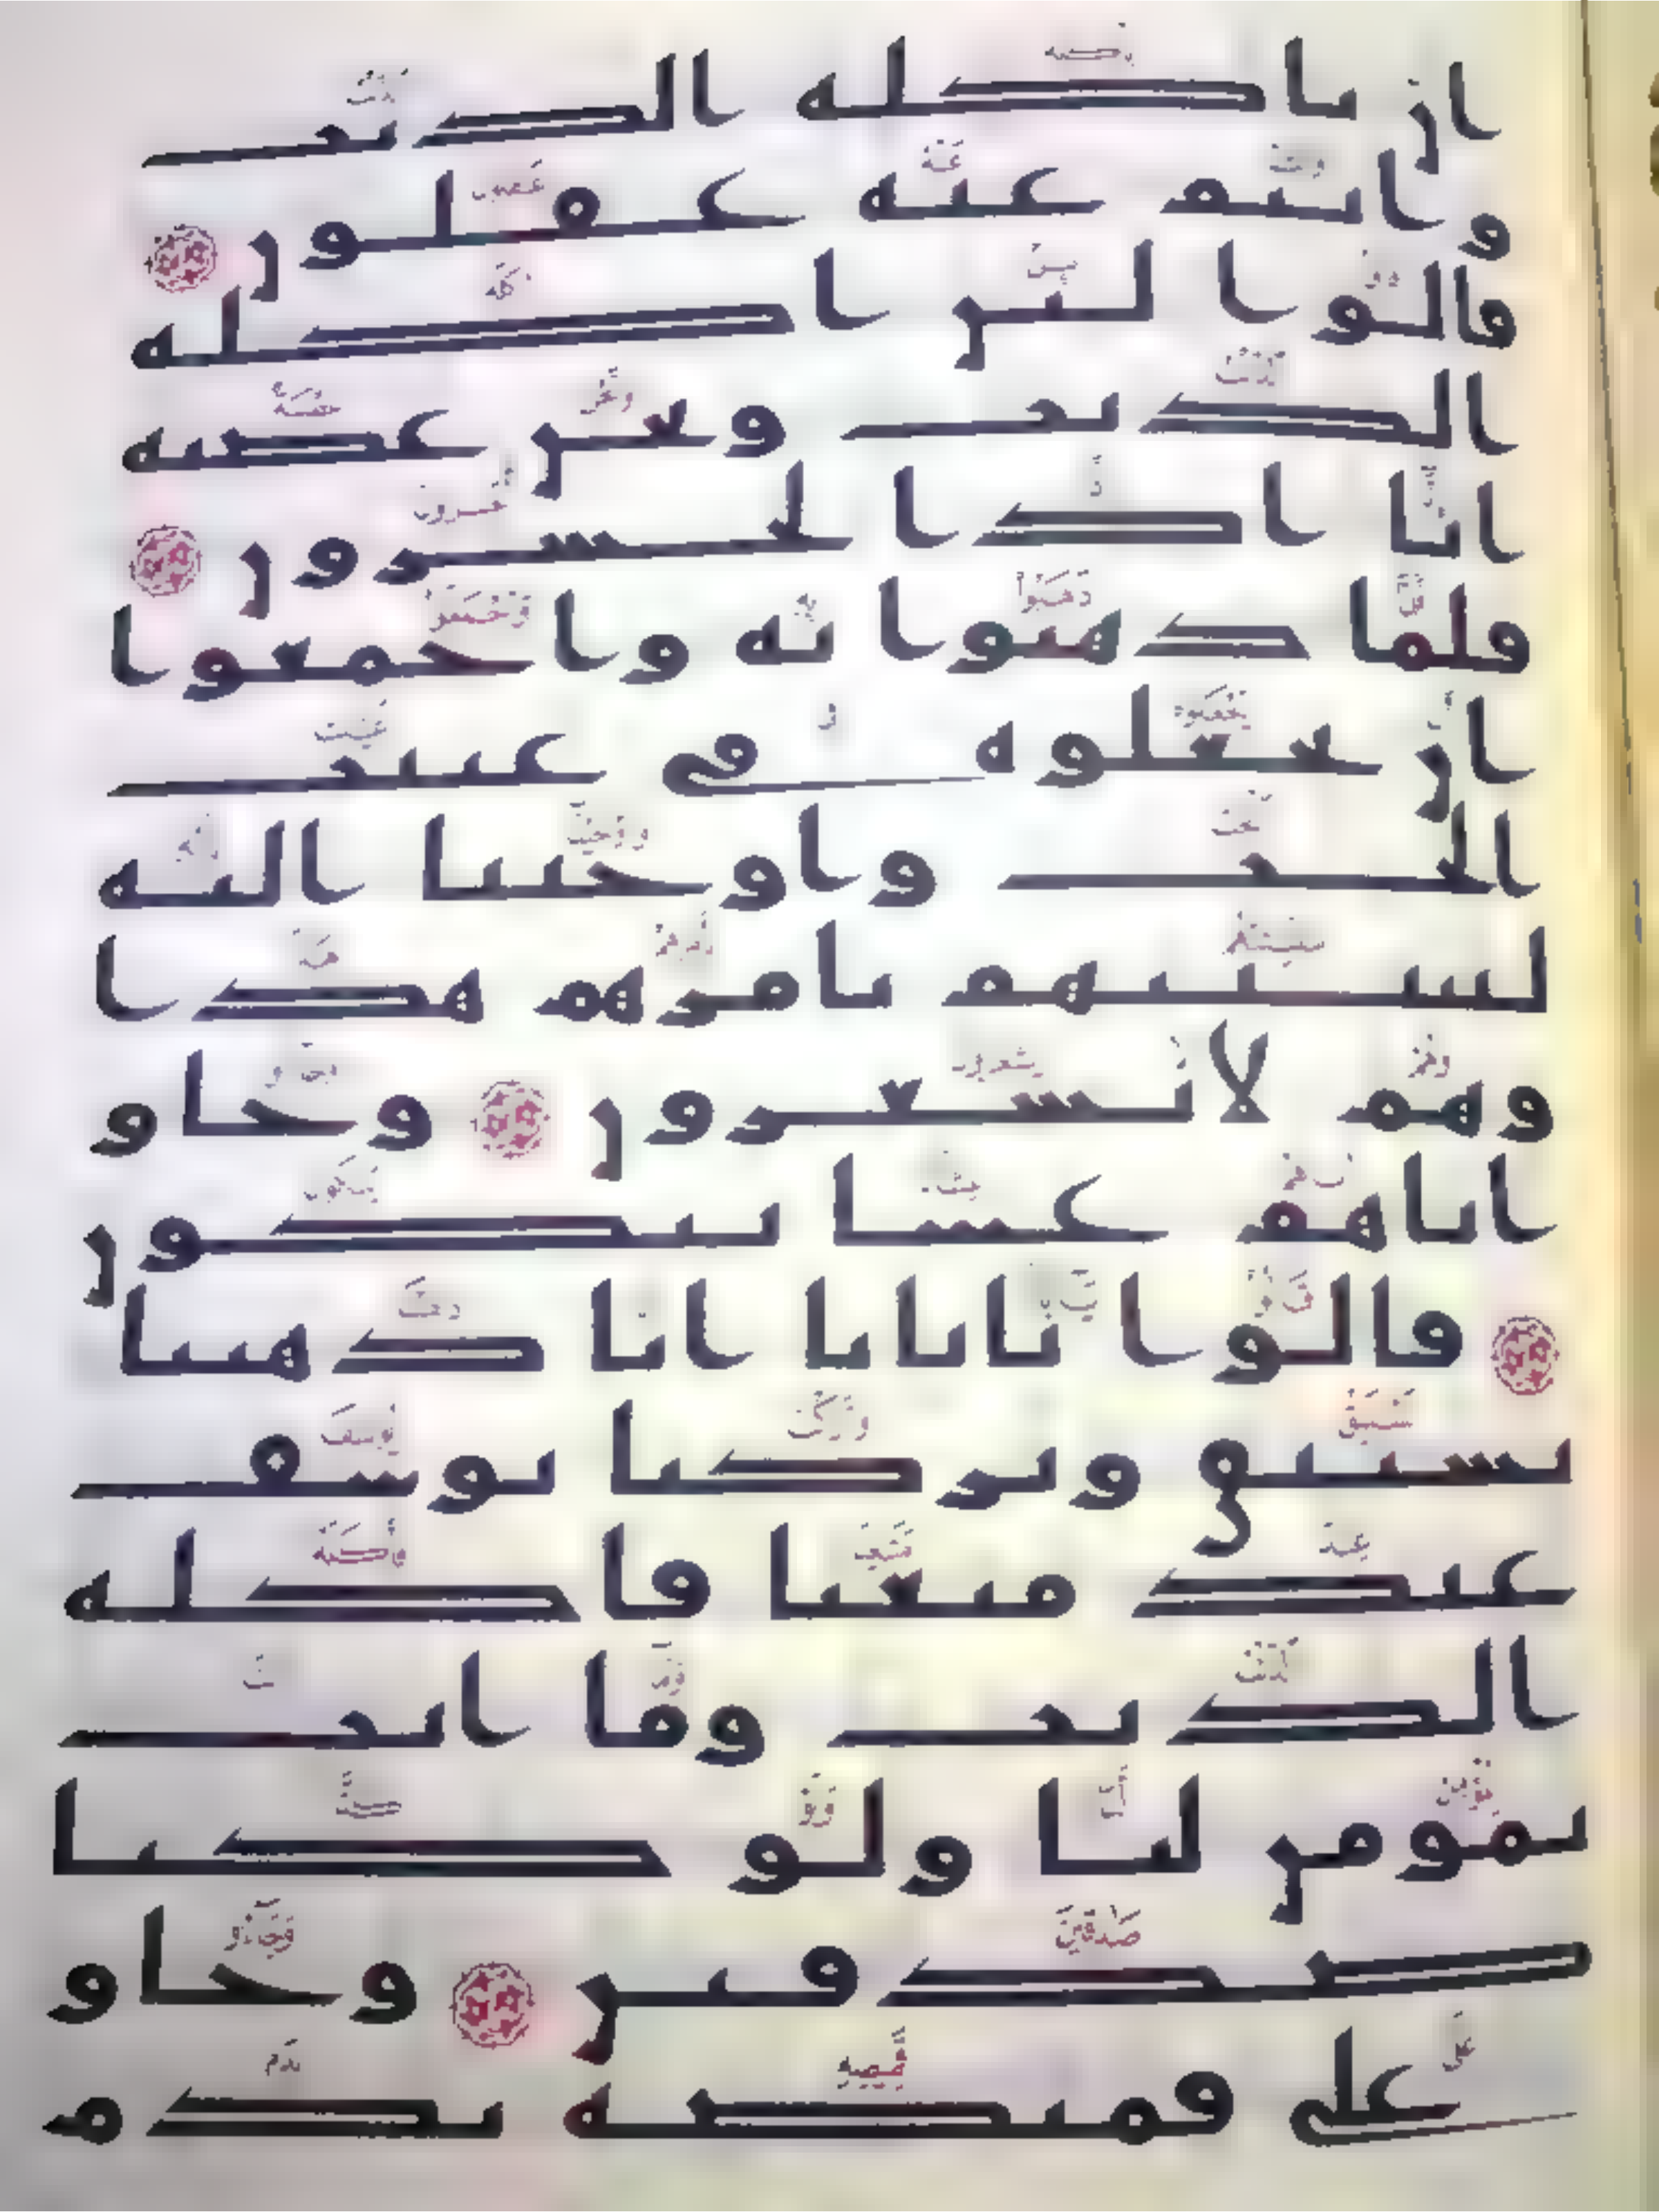 ان ياكله الذيب
وانتم عنه غفلون
قالوا لين اكله
الذيب ونحن عصبة
انا اذا لخسرون
فلما ذهبوا به واجمعوا
ان يجعلوه في غيبت
الجب واوحينا اليه
لتنبينهم بامرهم هذا
وهم لا يشعرون وجاو
اباهم عشا يبكون
قالوا يابانا انا ذهبنا
نستبق وتركنا يوسف
عند متعنا فاكله
الذيب وما انت
بمومن لنا ولو كنا
صدقين وجاو
على قميصه بدم